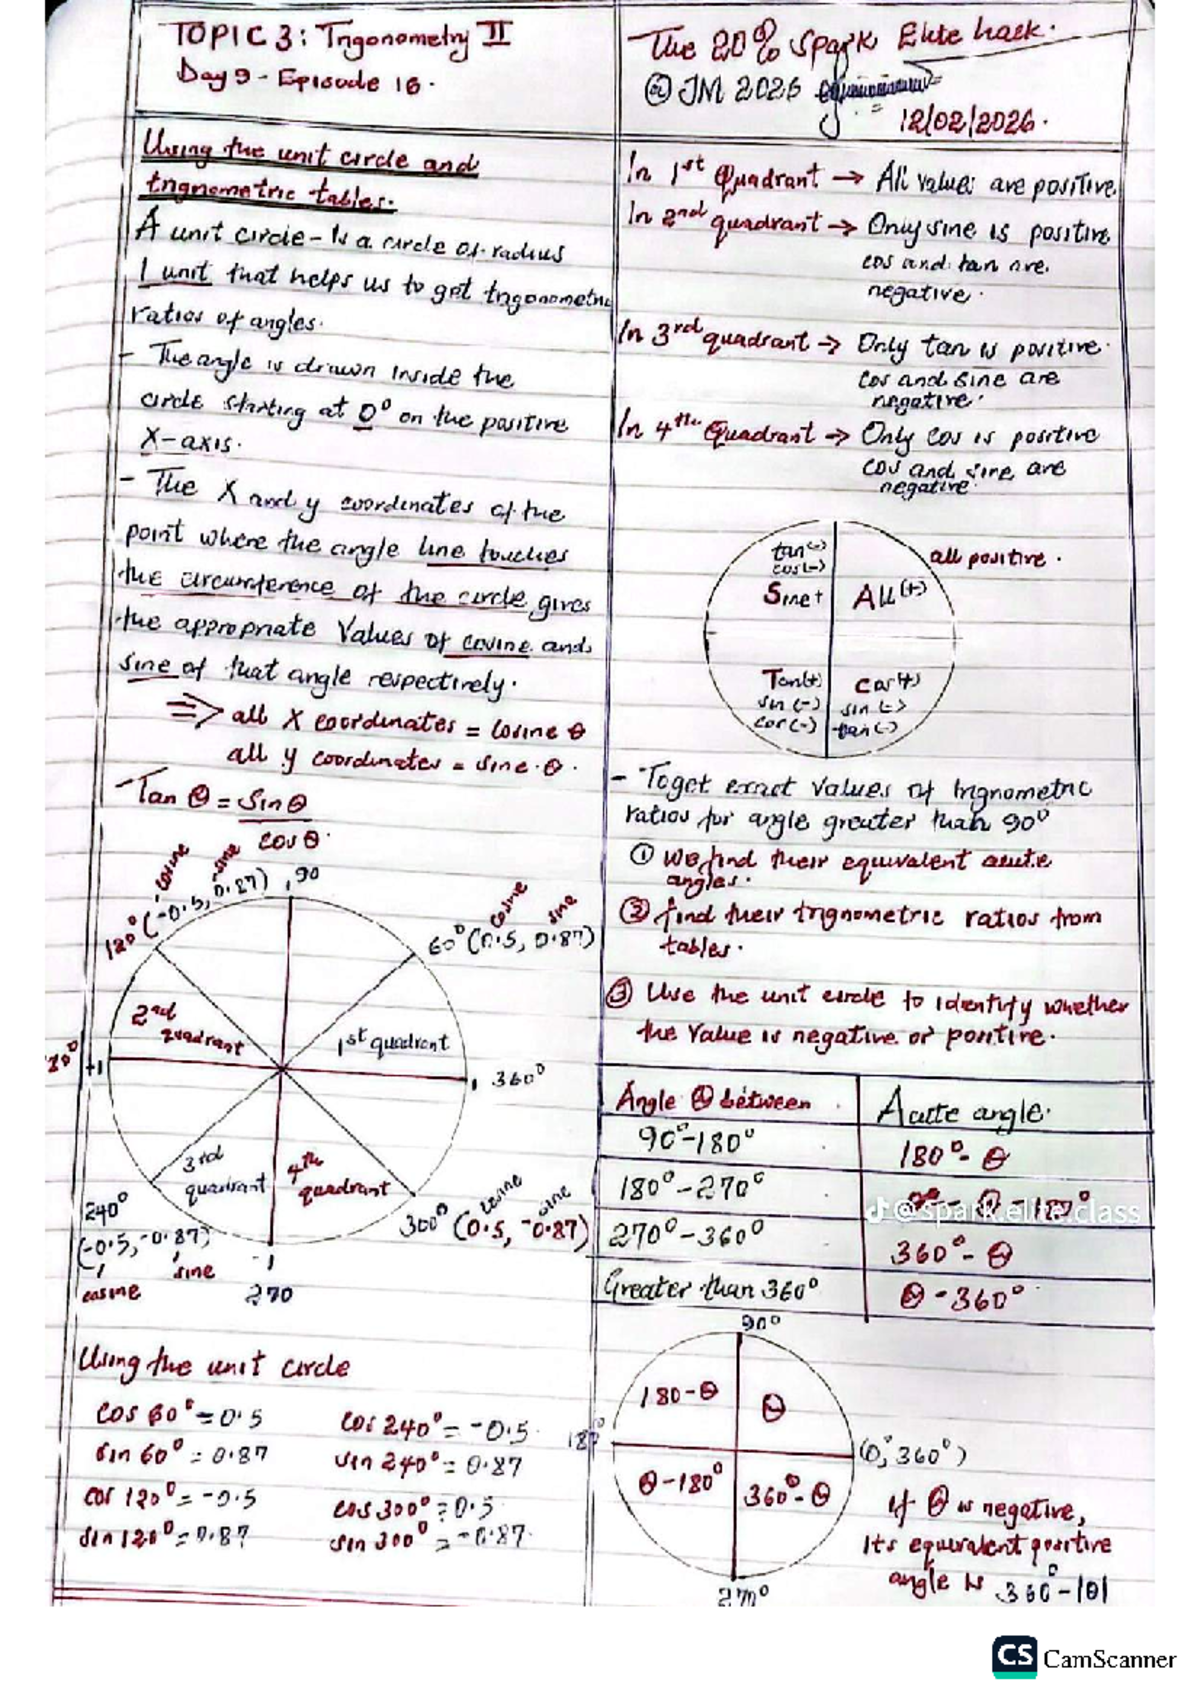 TOPIC 3: Trigonometry II
Day 9 - Episode 16.
The 20% Spark Elite hack.
@ JM 2026
12/02/2026.
Using the unit circle and
trignometric tables.
A unit circle - Is a circle of radius
1 unit that helps us to get trigonometric
ratios of angles.
- The angle is drawn inside the
circle starting at 0° on the positive
X-axis.
- The X and y coordinates of the
point where the angle line touches
the circumference of the circle, gives
the appropriate values of cosine and
sine of that angle respectively.
⇒ all X coordinates = cosine θ
all y coordinates = sine θ.
- Tan θ = sin θ
cos θ.
cosine sine
120° (-0.5, 0.87)
90
cosine sine
60° (0.5, 0.87)
2nd
quadrant
1st quadrant
+1
1 360°
3rd
quadrant
4th
quadrant
240°
(-0.5, -0.87)
cosine sine
-1
270
cosine sine
300° (0.5, -0.87)
Using the unit circle
cos 60° = 0.5
sin 60° = 0.87
cos 120° = -0.5
sin 120° = 0.87
cos 240° = -0.5
sin 240° = 0.87
cos 300° = 0.5
sin 300° = -0.87
In 1st Quadrant → All values are positive
In 2nd quadrant → Only sine is positive
cos and tan are
negative.
In 3rd quadrant → Only tan is positive.
cos and sine are
negative.
In 4th Quadrant → Only cos is positive
cos and sine are
negative.
tan(-)
cos(-)
Sine+
All(+)
all positive.
Tan(+)
sin(-)
cos(-)
Cos(+)
sin(-)
tan(-)
- To get exact values of trignometric
ratios for angle greater than 90°
① We find their equivalent acute
angles.
② find their trignometric ratios from
tables.
③ Use the unit circle to identify whether
the value is negative or positive.
Angle θ between
Acute angle.
90°-180°
180°- θ
180°-270°
θ - 180°
@spark.elite.class
270°-360°
360°- θ
Greater than 360°
θ - 360°
90°
180-θ
θ
180°
(0°, 360°)
θ-180°
360°-θ
270°
If θ is negative,
Its equivalent positive
angle is 360°-|θ|
CS CamScanner